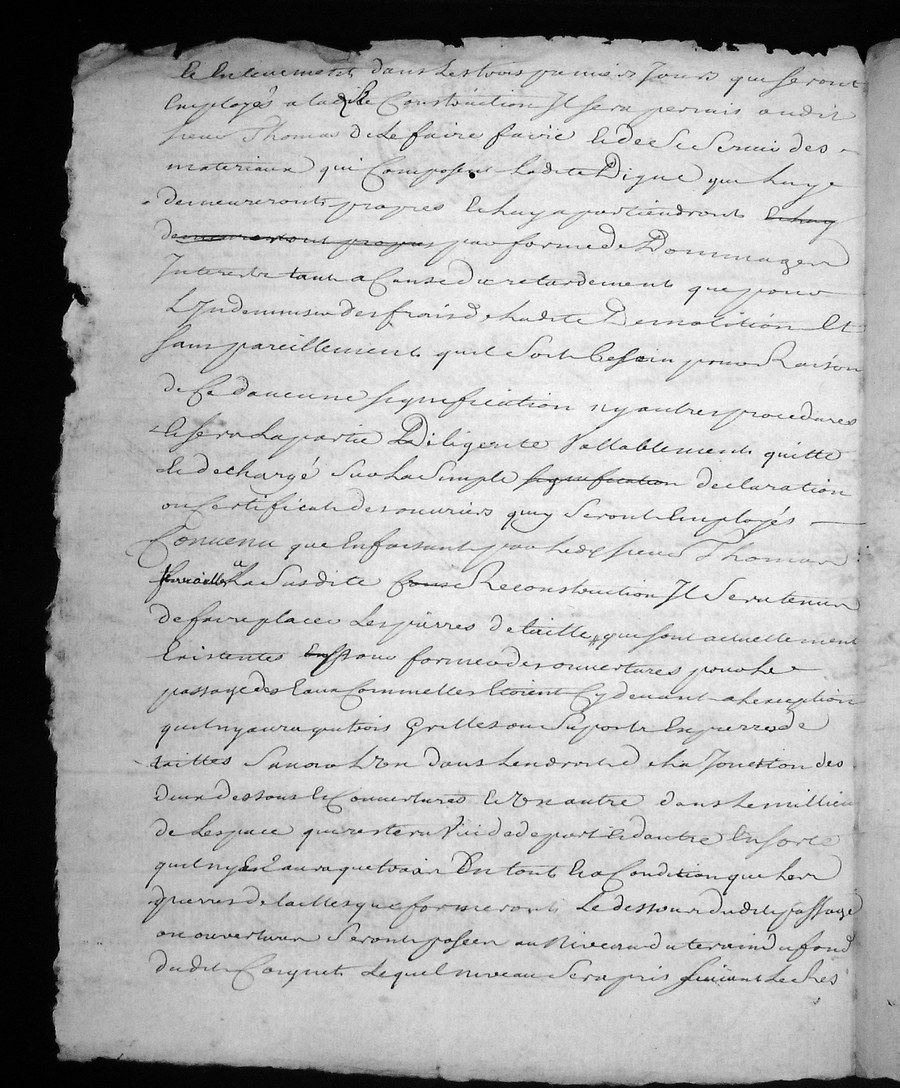 et enlevement dans les trois premiers Jours que seront
Employés a ladite Construction Il sera permis audit
sieur Thomas de Le faire faire et de se servir des
materiaux qui Composent Ladite Digue que Luy
demeureront propres et Luy apartiendront et Luy
demeureront propres par forme de Dommages
Interest tant a Cause du retardement que pour
L'Indemniser des frais de Ladite Demolition Et
sans pareillement quil soit besoin pour Raison
de Ce daucune signification ny autres procedures
et sera La partie Diligente Vallablement quitte
et dechargé sur La simple signification declaration
ou Certificat des ouvriers quy seront Employés
Convenu que En faisant par Ledit sieur Thomas
travailler a La susdite Reconstruction Il sera tenu
de faire placer Les pierres de taille que sont actuellement
Existentes pour former des ouvertures pour Le
passage des Eaux Comme Elles Etoient Cy devant a Lexception
quil ny aura que trois Grilles ou Suports En pierre de
tailles Savoir Un dans Lendroit de La Jonction des
deux dessous et Couvertures et Un autre dans Le millieu
de Lespace que restera Vuide de part et dautre En sorte
quil ny En aura que trois En tout Et a Condition que Les
pierres de tailles que formeront Le dessous dudit passage
ou ouverture Seront posées au Niveau du terrain du fond
dudit Lequel niveau Sera pris suivant Le Lés